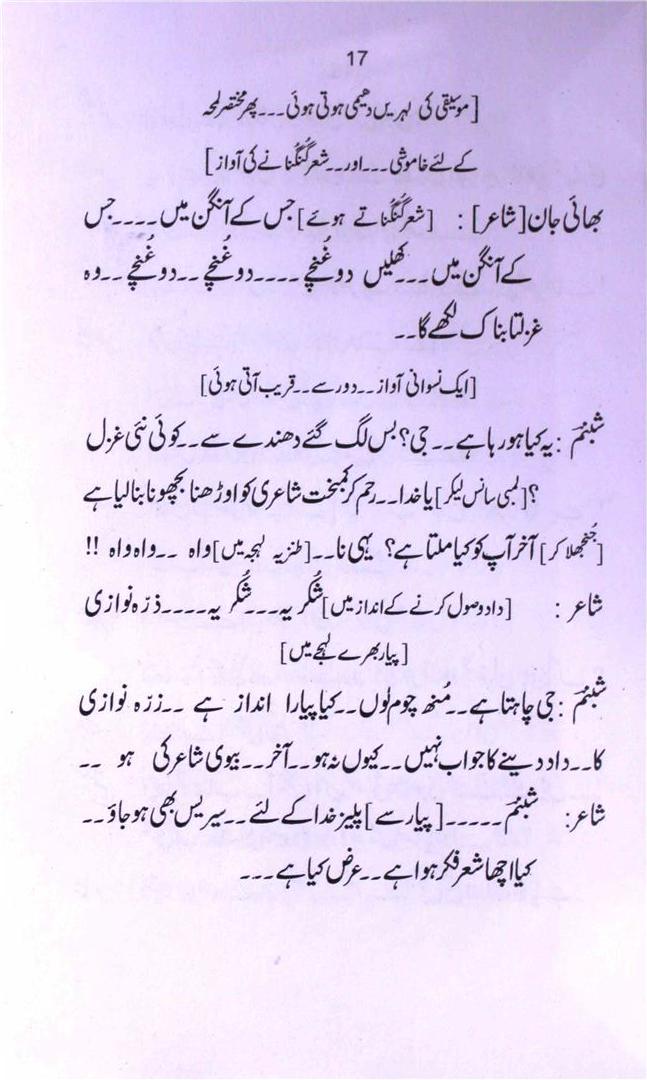 17
[موسیقی کی لہریں دھیمی ہوتی ہوئی۔۔۔پھر مختصر لمحہ
کے لئے خاموشی۔۔۔اور۔۔شعر گُنگُنانے کی آواز]
بھائی جان[شاعر]: [شعر گُنگُناتے ہوئے]جس کے آنگن میں۔۔۔۔جس
کے آنگن میں۔۔۔کھلیں دو غُنچے۔۔۔۔دو غُنچے۔۔دو غُنچے۔۔وہ
غزلتا بناک لکھے گا۔۔
[ایک نسوانی آواز۔۔دور سے۔۔قریب آتی ہوئی]
شبنم: یہ کیا ہو رہا ہے۔۔جی؟ بس لگ گئے دھندے سے۔۔کوئی نئی غزل
؟[لمبی سانس لیکر]یا خدا۔۔رحم کر کمبخت شاعری کو اوڑھنا بچھونا بنا لیا ہے
[جُنجھلا کر] آخر آپ کو کیا ملتا ہے؟ یہی نا۔۔[طنزیہ لہجہ میں]واہ ۔۔واہ واہ !!
شاعر: [داد وصول کرنے کے انداز میں]شُکریہ۔۔۔شُکریہ۔۔۔۔ذرّہ نوازی
[پیار بھرے لہجے میں]
شبنم: جی چاہتا ہے۔۔مُنھ چوم لوں۔۔کیا پیارا انداز ہے ۔۔زرّہ نوازی
کا۔۔داد دینے کا جواب نہیں۔۔کیوں نہ ہو۔۔آخر۔۔بیوی شاعر کی ہو ۔۔
شاعر: شبنم۔۔۔۔۔[پیار سے]پلیز خدا کے لئے۔۔سیریس بھی ہو جاؤ۔۔
کیا اچھا شعر فکر ہوا ہے۔۔عرض کیا ہے۔۔۔